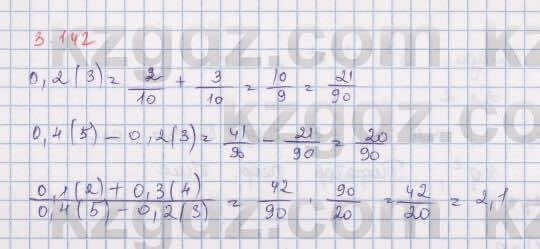 3.142
0,2(3) = 2/10 + 3/10 = 10/9 = 21/90
0,4(5) - 0,2(3) = 41/90 - 21/90 = 20/90
0,1(2) + 0,3(4) / 0,4(5) - 0,2(3) = 42/90 · 90/20 = 42/20 = 2,1
kzgdz.com
kzgdz.com
kzgdz.com